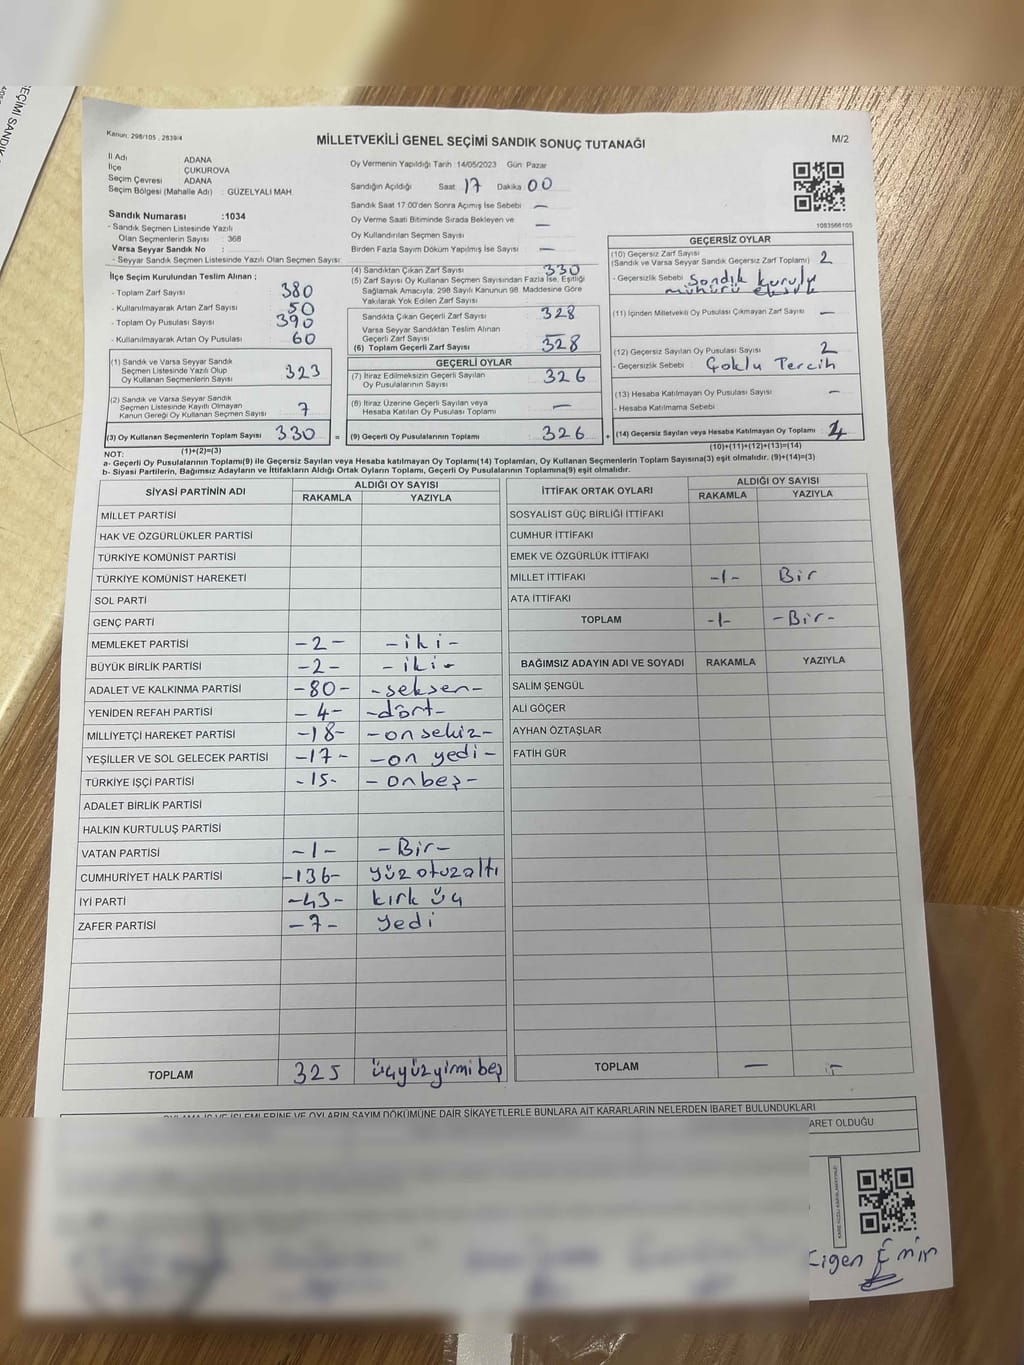 EÇİMİ SANDIK
Kanun: 298/105 , 2839/4
MİLLETVEKİLİ GENEL SEÇİMİ SANDIK SONUÇ TUTANAĞI
M/2
İl Adı ADANA
İlçe ÇUKUROVA
Seçim Çevresi ADANA
Seçim Bölgesi (Mahalle Adı) : GÜZELYALI MAH
Oy Vermenin Yapıldığı Tarih :14/05/2023 Gün: Pazar
Sandığın Açıldığı Saat 17 Dakika 00
Sandık Saat 17:00'den Sonra Açımış İse Sebebi —
Oy Verme Saati Bitiminde Sırada Bekleyen ve
Oy Kullandırılan Seçmen Sayısı —
Birden Fazla Sayım Döküm Yapılmış İse Sayısı —
1083566105
Sandık Numarası :1034
- Sandık Seçmen Listesinde Yazılı
Olan Seçmenlerin Sayısı : 368
Varsa Seyyar Sandık No :
- Seyyar Sandık Seçmen Listesinde Yazılı Olan Seçmen Sayısı:
İlçe Seçim Kurulundan Teslim Alınan ;
- Toplam Zarf Sayısı 380
- Kullanılmayarak Artan Zarf Sayısı 50
- Toplam Oy Pusulası Sayısı 390
- Kullanılmayarak Artan Oy Pusulası 60
(1) Sandık ve Varsa Seyyar Sandık
Seçmen Listesinde Yazılı Olup
Oy Kullanan Seçmenlerin Sayısı 323
(2) Sandık ve Varsa Seyyar Sandık
Seçmen Listesinde Kayıtlı Olmayan
Kanun Gereği Oy Kullanan Seçmen Sayısı 7
(3) Oy Kullanan Seçmenlerin Toplam Sayısı 330 =
(1)+(2)=(3)
(4) Sandıktan Çıkan Zarf Sayısı 330
(5) Zarf Sayısı Oy Kullanan Seçmen Sayısından Fazla İse, Eşitliği
Sağlamak Amacıyla, 298 Sayılı Kanunun 98. Maddesine Göre
Yakılarak Yok Edilen Zarf Sayısı
Sandıkta Çıkan Geçerli Zarf Sayısı 328
Varsa Seyyar Sandıktan Teslim Alınan
Geçerli Zarf Sayısı —
(6) Toplam Geçerli Zarf Sayısı 328
GEÇERLİ OYLAR
(7) İtiraz Edilmeksizin Geçerli Sayılan
Oy Pusulalarının Sayısı 326
(8) İtiraz Üzerine Geçerli Sayılan veya
Hesaba Katılan Oy Pusulası Toplamı —
(9) Geçerli Oy Pusulalarının Toplamı 326 +
GEÇERSİZ OYLAR
(10) Geçersiz Zarf Sayısı
(Sandık ve Varsa Seyyar Sandık Geçersiz Zarf Toplamı) 2
- Geçersizlik Sebebi Sandık kurulu
mühürü eksik
(11) İçinden Milletvekili Oy Pusulası Çıkmayan Zarf Sayısı —
(12) Geçersiz Sayılan Oy Pusulası Sayısı 2
- Geçersizlik Sebebi : Çoklu Tercih
(13) Hesaba Katılmayan Oy Pusulası Sayısı —
- Hesaba Katılmama Sebebi
(14) Geçersiz Sayılan veya Hesaba Katılmayan Oy Toplamı : 4
(10)+(11)+(12)+(13)=(14)
NOT:
a- Geçerli Oy Pusulalarının Toplamı(9) ile Geçersiz Sayılan veya Hesaba katılmayan Oy Toplamı(14) Toplamları, Oy Kullanan Seçmenlerin Toplam Sayısına(3) eşit olmalıdır. (9)+(14)=(3)
b- Siyasi Partilerin, Bağımsız Adayların ve İttifakların Aldığı Ortak Oyların Toplamı, Geçerli Oy Pusulalarının Toplamına(9) eşit olmalıdır.
SİYASİ PARTİNİN ADI ALDIĞI OY SAYISI
RAKAMLA YAZIYLA
MİLLET PARTİSİ
HAK VE ÖZGÜRLÜKLER PARTİSİ
TÜRKİYE KOMÜNİST PARTİSİ
TÜRKİYE KOMÜNİST HAREKETİ
SOL PARTİ
GENÇ PARTİ
MEMLEKET PARTİSİ -2- -iki-
BÜYÜK BİRLİK PARTİSİ -2- -iki-
ADALET VE KALKINMA PARTİSİ -80- -seksen-
YENİDEN REFAH PARTİSİ -4- -dört-
MİLLİYETÇİ HAREKET PARTİSİ -18- -onsekiz-
YEŞİLLER VE SOL GELECEK PARTİSİ -17- -on yedi-
TÜRKİYE İŞÇİ PARTİSİ -15- -onbeş-
ADALET BİRLİK PARTİSİ
HALKIN KURTULUŞ PARTİSİ
VATAN PARTİSİ -1- -Bir-
CUMHURİYET HALK PARTİSİ -136- yüz otuzaltı
İYİ PARTİ -43- kırk üç
ZAFER PARTİSİ -7- yedi
TOPLAM 325 üçyüzyirmibeş
İTTİFAK ORTAK OYLARI ALDIĞI OY SAYISI
RAKAMLA YAZIYLA
SOSYALİST GÜÇ BİRLİĞİ İTTİFAKI
CUMHUR İTTİFAKI
EMEK VE ÖZGÜRLÜK İTTİFAKI
MİLLET İTTİFAKI -1- Bir
ATA İTTİFAKI
TOPLAM -1- -Bir-
BAĞIMSIZ ADAYIN ADI VE SOYADI RAKAMLA YAZIYLA
SALİM ŞENGÜL
ALİ GÖÇER
AYHAN ÖZTAŞLAR
FATİH GÜR
TOPLAM —
OYLAMA İŞ VE İŞLEMLERİNE VE OYLARIN SAYIM DÖKÜMÜNE DAİR ŞİKAYETLERLE BUNLARA AİT KARARLARIN NELERDEN İBARET BULUNDUKLARI
ARET OLDUĞU
Emin